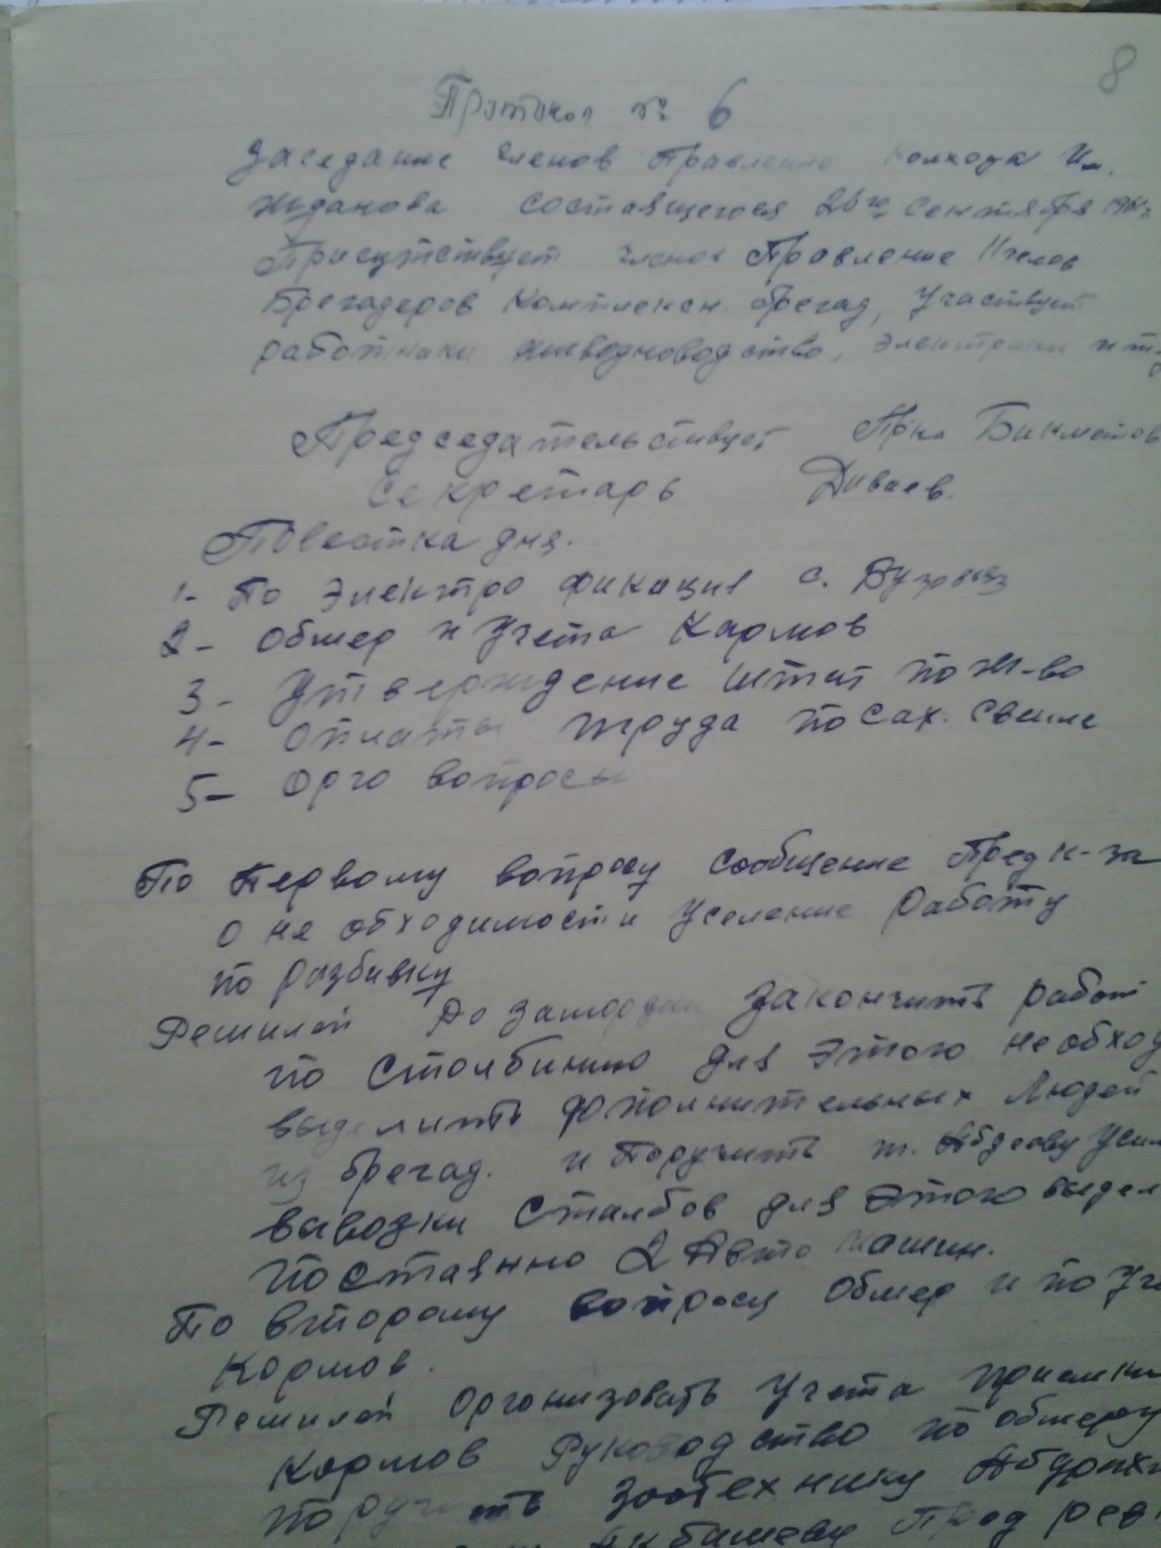 8
Протокол № 6
Заседание членов Правление колхоза Им.
Жданова состоявщегося 26го сентября
Присутствует членов Провление 11 челов
Брегадеров Комплексн. брегад, Участвует
работники животноводство, электрики и т.
Председательствует Бикметов
Секретарь Диваев.
Повестка дня.
1- По электро фикация с. Вузовяз
2- Обмер и Учета Кармов
3- Утверждение штат по ж-во
4- Оплаты труда по сах. свекле
5- Орго вопросы
По Первому вопросу сообщение Пред к-за
о не обходимости Уселение работу
по разбивку
Решилой До заморозки закончить работ
по столбинию для этого необход
выделить дополнительных Людей
из брегад. и Поручить т. Абдееву Усил
вывозки сталбов для этого выдел
поставнно 2 Авто машин.
По второму вопросу Обмер и по Уче
Кормов.
Решилой Организовать Учета приемки
Кормов Руководство по обмеру
поручить зоотехнику
Акбашеву Пред рев